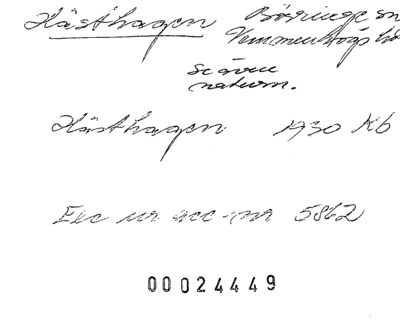 Hästhagen Bösringe sn
Vemmenhögs hd
Se även
naturn.
Hästhagen 1930 Kb
Exc ur acc-nr 5862
00024449